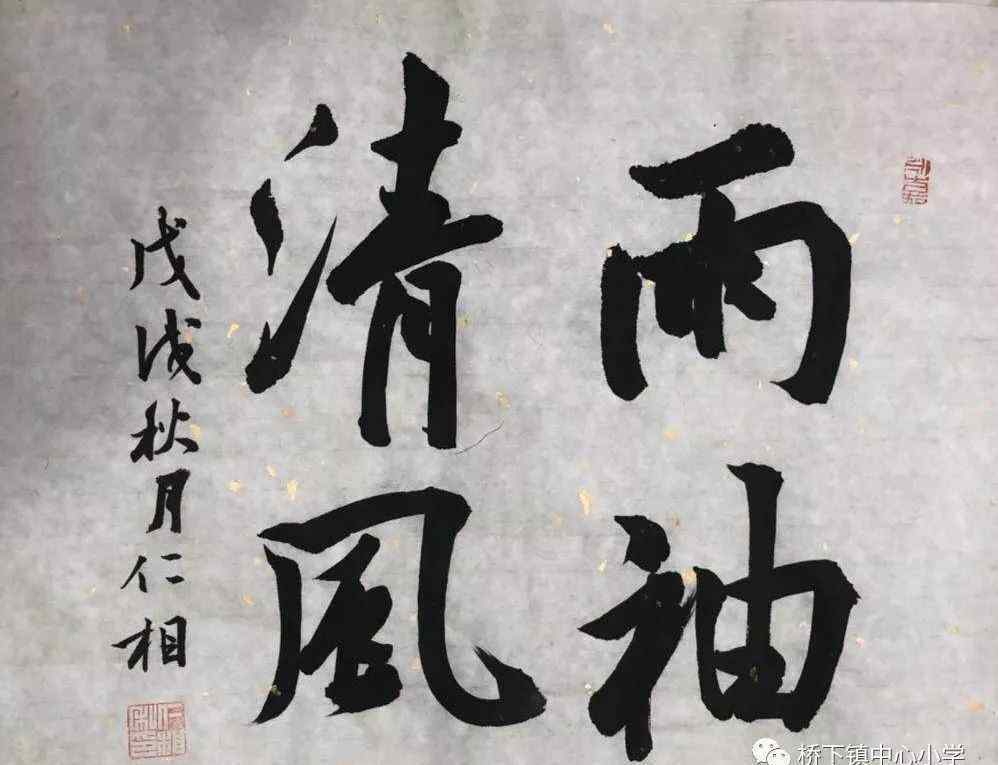 两袖
清風
戊戌秋月仁相
桥下镇中心小学